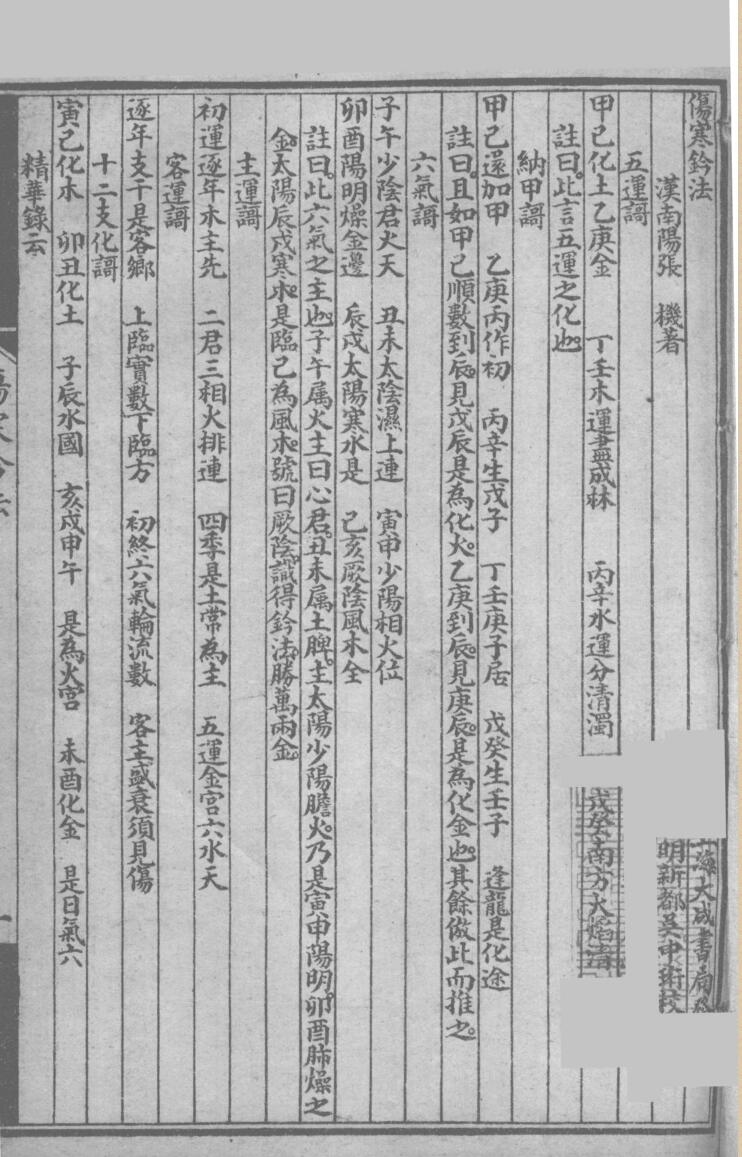 傷寒鈐法
漢南陽張　機著　明新都吳中珩校
五運謌
甲己化土乙庚金　丁壬木運盡成林　丙辛水運分清濁　戊癸南方火焰清
註曰。此言五運之化也。
納甲謌
甲己還加甲　乙庚丙作初　丙辛生戊子　丁壬庚子居　戊癸生壬子　逢龍是化途
註曰。且如甲己順數到辰。見戊辰是為化火。乙庚到辰。見庚辰。是為化金也。其餘倣此而推之。
六氣謌
子午少陰君火天　丑未太陰濕上連　寅申少陽相火位
卯酉陽明燥金邊　辰戌太陽寒水是　己亥厥陰風木全
註曰。此六氣之主也。子午属火主曰心君。丑未属土脾。主太陽少陽膽火。乃是寅申陽明。卯酉肺燥之
金。太陽辰戌寒水。是臨己為風木。號曰厥陰。識得鈐法。勝萬兩金。
主運謌
初運逐年木主先　二君三相火排連　四季是土常為主　五運金宮六水天
客運謌
逐年支干是客鄉　上臨實數下臨方　初終六氣輪流數　客主盛衰須見傷
十二支化謌
寅己化木　卯丑化土　子辰水國　亥戌申午　是為火宮　未酉化金　是日氣六
精華錄云